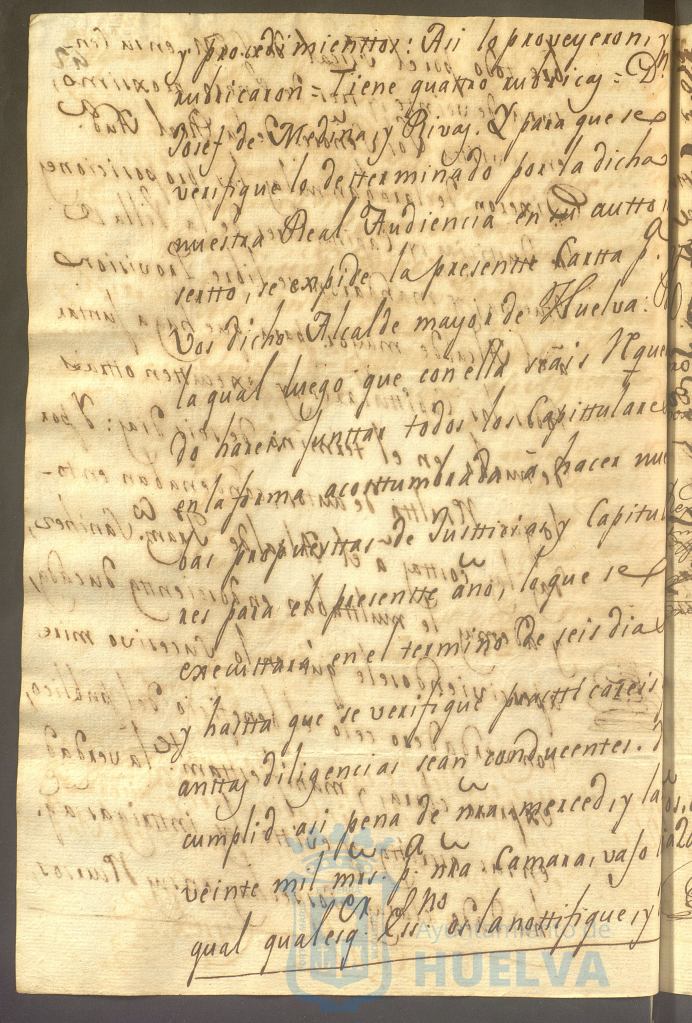 y procedimienttos: Asi lo proveyeron, y
rubricaron = Tiene quattro rubricas = Dn.
Josef de Medina, y Rivas. Y para que se
verifique lo determinado por la dicha
nuestra Real Audiencia en su autto in
sertto, se expide la presentte Cartta p.ª
Vos dicho Alcalde mayor de Huelva:
la qual luego que con ella seáis rque
do hareis junttar todos los Capittulares
en la forma acosttumbrada á hacer nue
bas propuesttas de Justticias, y Capitu
res para el presentte año, lo que se
executtará en el termino de seis dias
y hastta que se verifique practticareis
anttas diligencias sean conducentes.
cumplid asi pena de nra. merced, y la
veinte mil mrs. p.ª nra. Camara, vajo la
qual qualesq.ª Ess.no os la nottifique, y
Ayuntamiento de
HUELVA